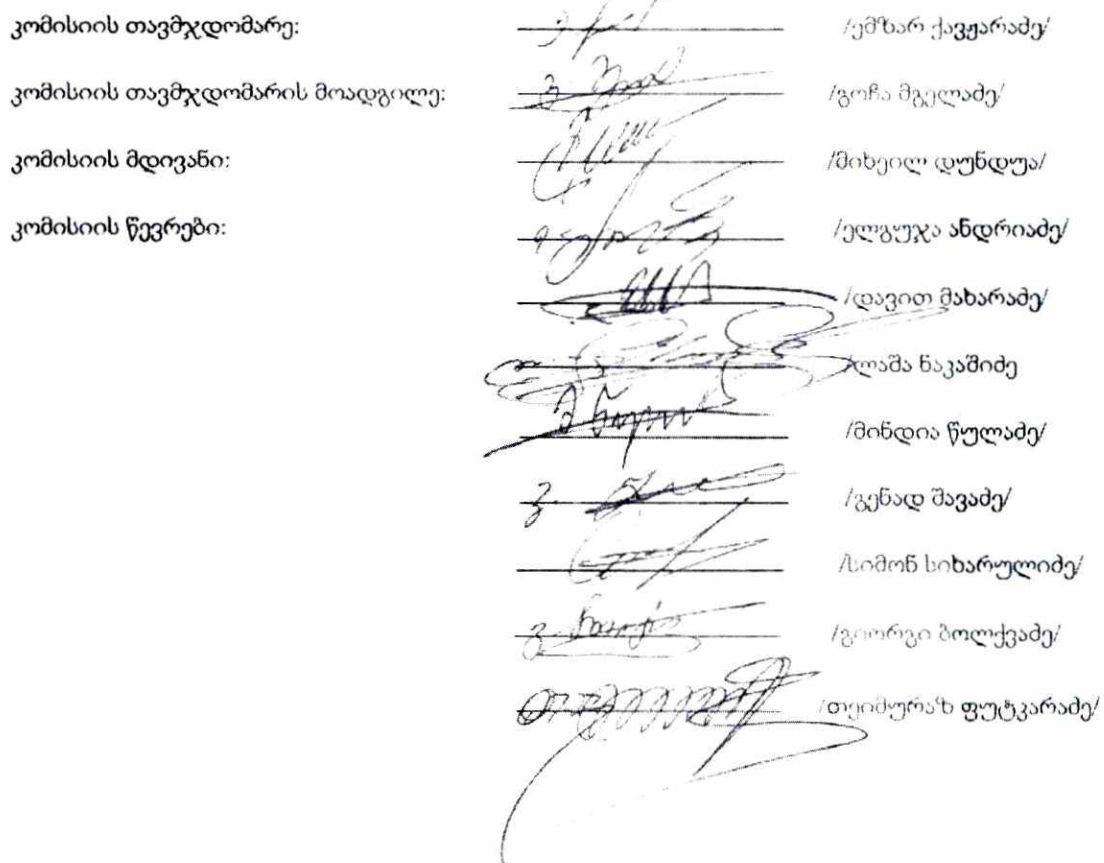 კომისიის თავმჯდომარე: /ემზარ ქავჟარაძე/
კომისიის თავმჯდომარის მოადგილე: /გოჩა მგელაძე/
კომისიის მდივანი: /მიხეილ დუნდუა/
კომისიის წევრები: /ელგუჯა ანდრიაძე/
/დავით მახარაძე/
/ლაშა ნაკაშიძე
/მინდია წულაძე/
/გენად შავაძე/
/სიმონ სიხარულიძე/
/გიორგი ბოლქვაძე/
/თეიმურაზ ფუტკარაძე/